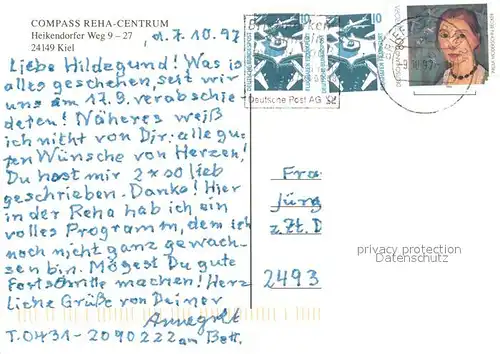 COMPASS REHA-CENTRUM
Heikendorfer Weg 9 – 27
24149 Kiel
d. 7.10.97
Liebe Hildegund! Was ist
alles geschehen, seit wir
uns am 17.9. verabschie-
deten! Näheres weiß
ich nicht von Dir: alle gu-
ten Wünsche von Herzen!
Du hast mir 2x so lieb
geschrieben. Danke! Hier
in der Reha hab ich ein
volles Programm, dem ich
noch nicht ganz gewach-
sen bin. Mögest Du gute
Fortschritte machen! Herz-
liche Grüße von Deiner
Annegret
T. 0431-2090222 am Bett.
10
10
Deutsche Post AG
Fra
Jürg
z.Zt. D
2493
privacy protection
Datenschutz